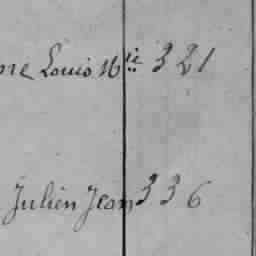 re Louis Mie 321
Julien Jean 336